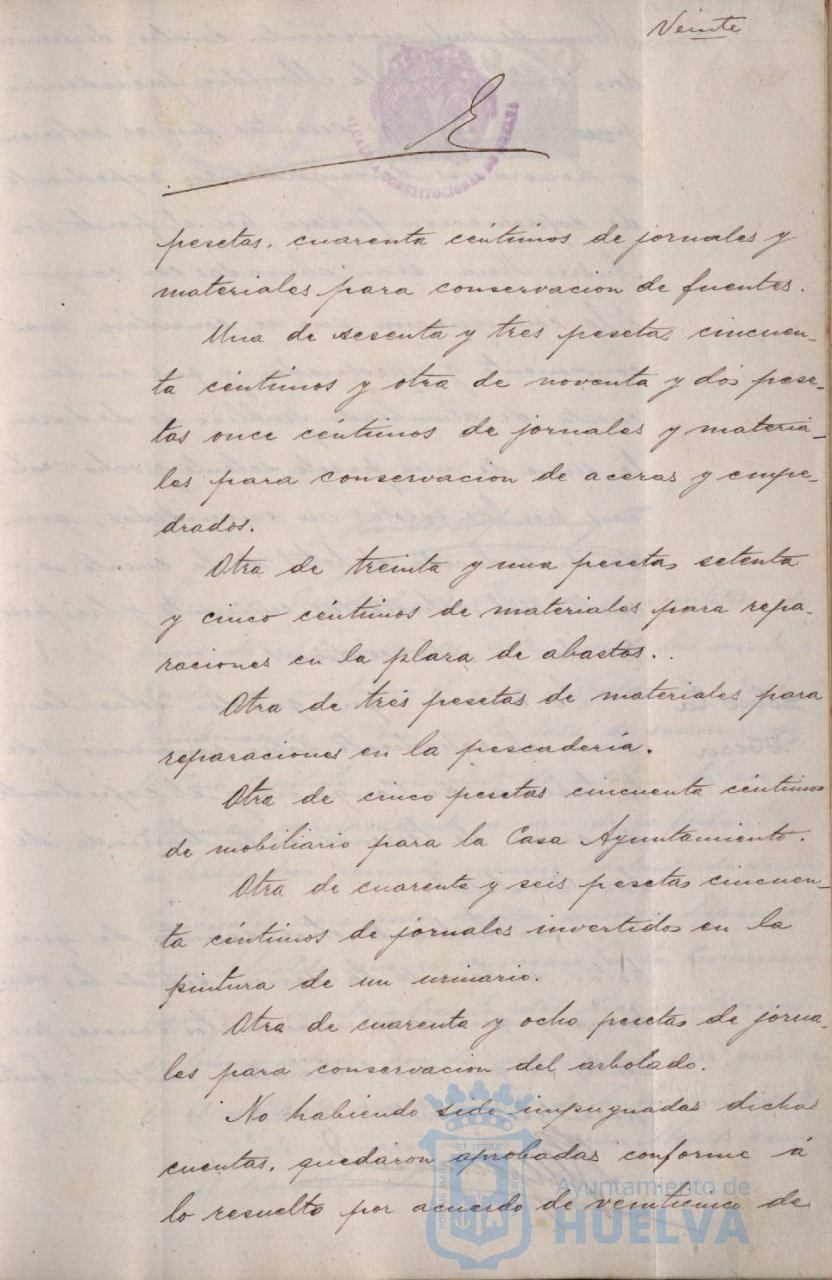 Veinte
ALCALDIA CONSTITUCIONAL DE HUELVA
pesetas, cuarenta céntimos de jornales y
materiales para conservacion de fuentes.
Una de sesenta y tres pesetas cincuen-
ta céntimos y otra de noventa y dos pese-
tas once céntimos de jornales y materia-
les para conservacion de aceras y empe-
drados.
Otra de treinta y una pesetas setenta
y cinco céntimos de materiales para repa-
raciones en la plaza de abastos.
Otra de tres pesetas de materiales para
reparaciones en la pescadería.
Otra de cinco pesetas cincuenta céntimos
de mobiliario para la Casa Ayuntamiento.
Otra de cuarenta y seis pesetas cincuen-
ta céntimos de jornales invertidos en la
pintura de un urinario.
Otra de cuarenta y ocho pesetas de jorna-
les para conservacion del arbolado.
No habiendo sido impugnadas dichas
cuentas, quedaron aprobadas conforme á
lo resuelto por acuerdo de veinticinco de
Ayuntamiento de
HUELVA